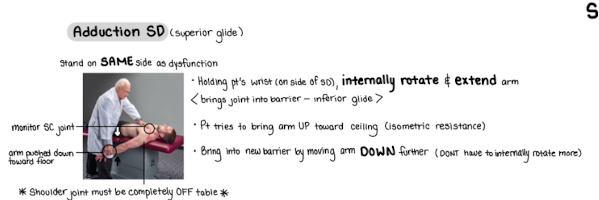 S
Adduction SD (superior glide)
Stand on SAME side as dysfunction
• Holding pt's wrist (on side of SD), internally rotate & extend arm
< brings joint into barrier – inferior glide >
monitor SC joint
• Pt tries to bring arm UP toward ceiling (isometric resistance)
arm pushed down
toward floor
• Bring into new barrier by moving arm DOWN further (DONT have to internally rotate more)
* Shoulder joint must be completely OFF table *